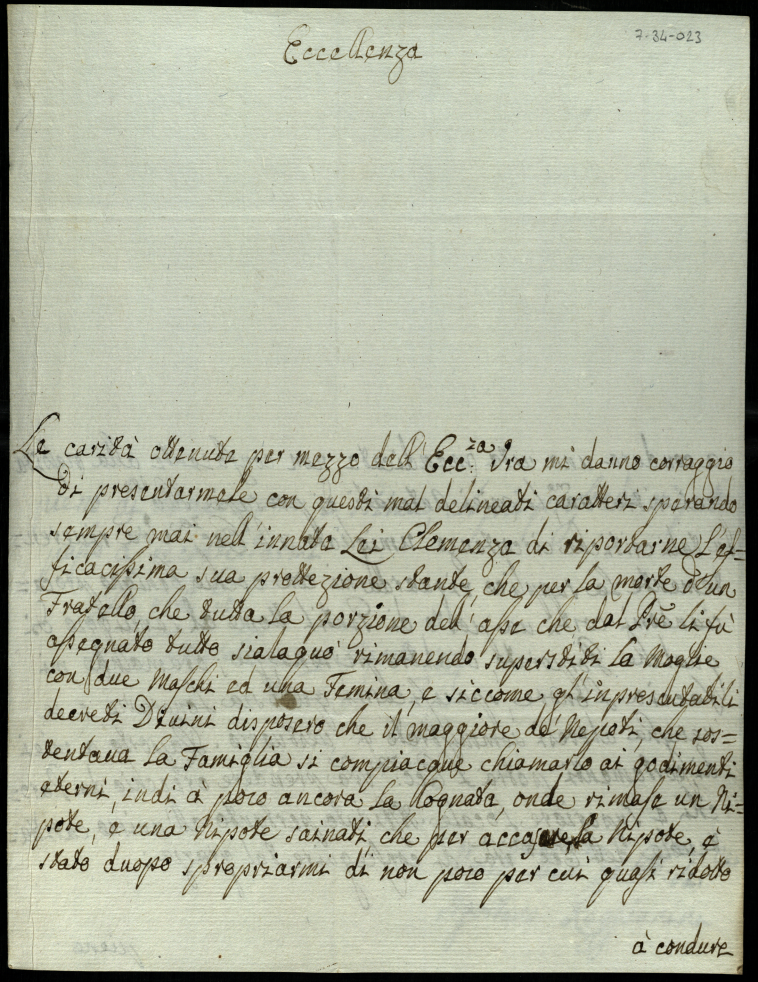 7-34-023
Eccellenza
Le carità ottenute per mezzo dell'Ecc.za Vra mi danno corraggio
di presentarmele con questi mal delineati caratteri sperando
sempre mai nell'innata Lei Clemenza di riportarne l'ef=
ficacissima sua prottezione stante, che per la morte d'un
Fratello, che tutta la porzione dell'asse che dal Pre li fù
assegnato tutto sialaquò rimanendo superstiti la Moglie
con due Maschi ed una Femina, e siccome gl'inprescutabili
decreti Divini disposero che il maggiore de' Nepoti, che sos=
tentaua la Famiglia si compiacque chiamarlo ai godimenti
eterni, indi à poco ancora la Cognata, onde rimase un Ni=
pote, e una Nipote sainati, che per accasare la Nipote, è
stato duopo spropriarmi di non poco per cui quasi ridotto
à condure